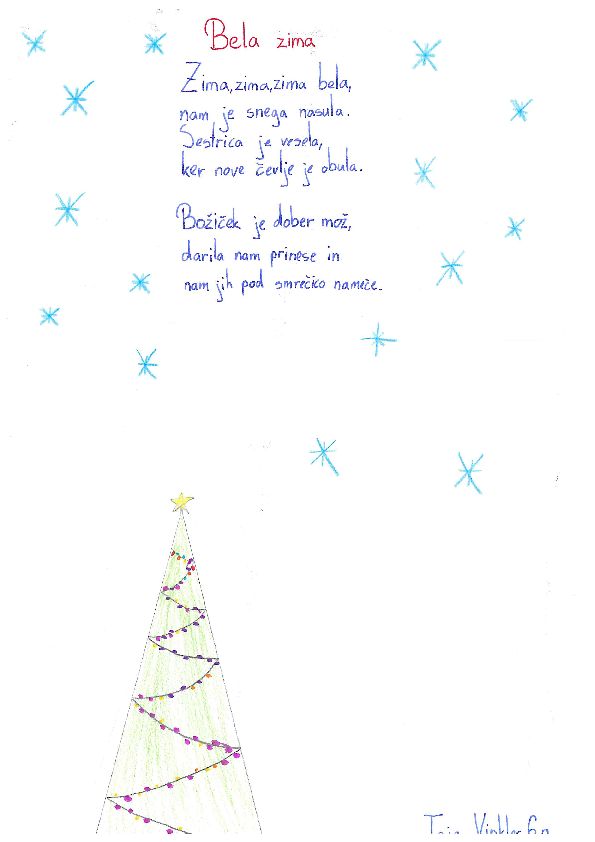 Bela zima
Zima, zima, zima bela,
nam je snega nasula.
Sestrica je vesela,
ker nove čevlje je obula.
Božiček je dober mož,
darila nam prinese in
nam jih pod smrečico nameče.